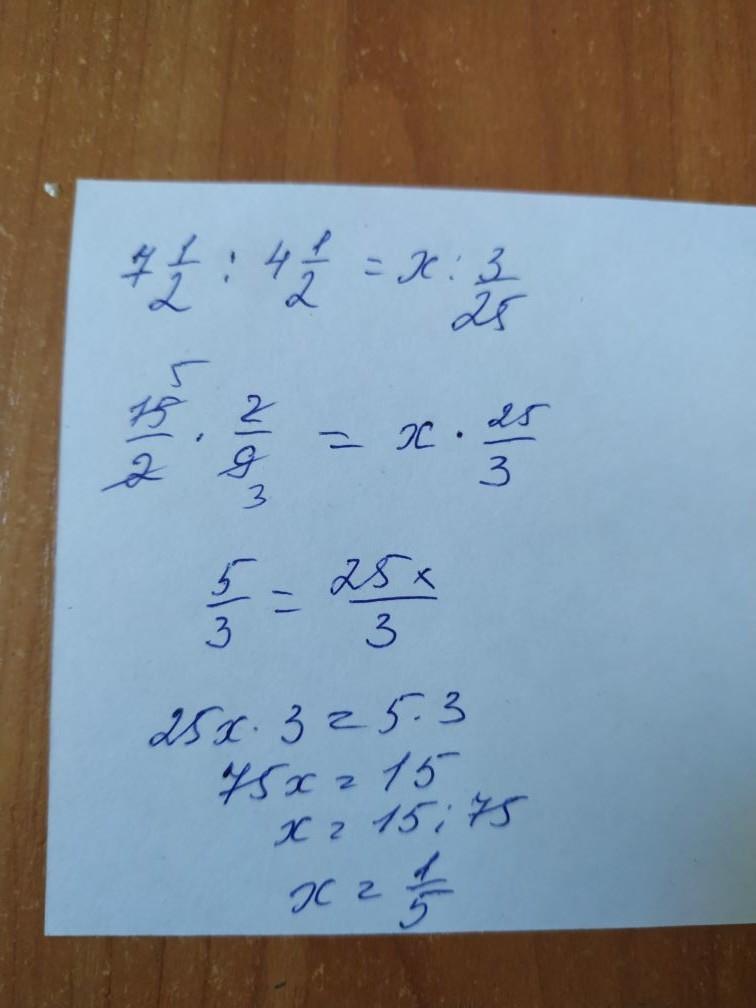 7 1/2 : 4 1/2 = x : 3/25
15/2 · 2/9 = x · 25/3
5
3
5/3 = 25x/3
25x · 3 = 5 · 3
75x = 15
x = 15 : 75
x = 1/5